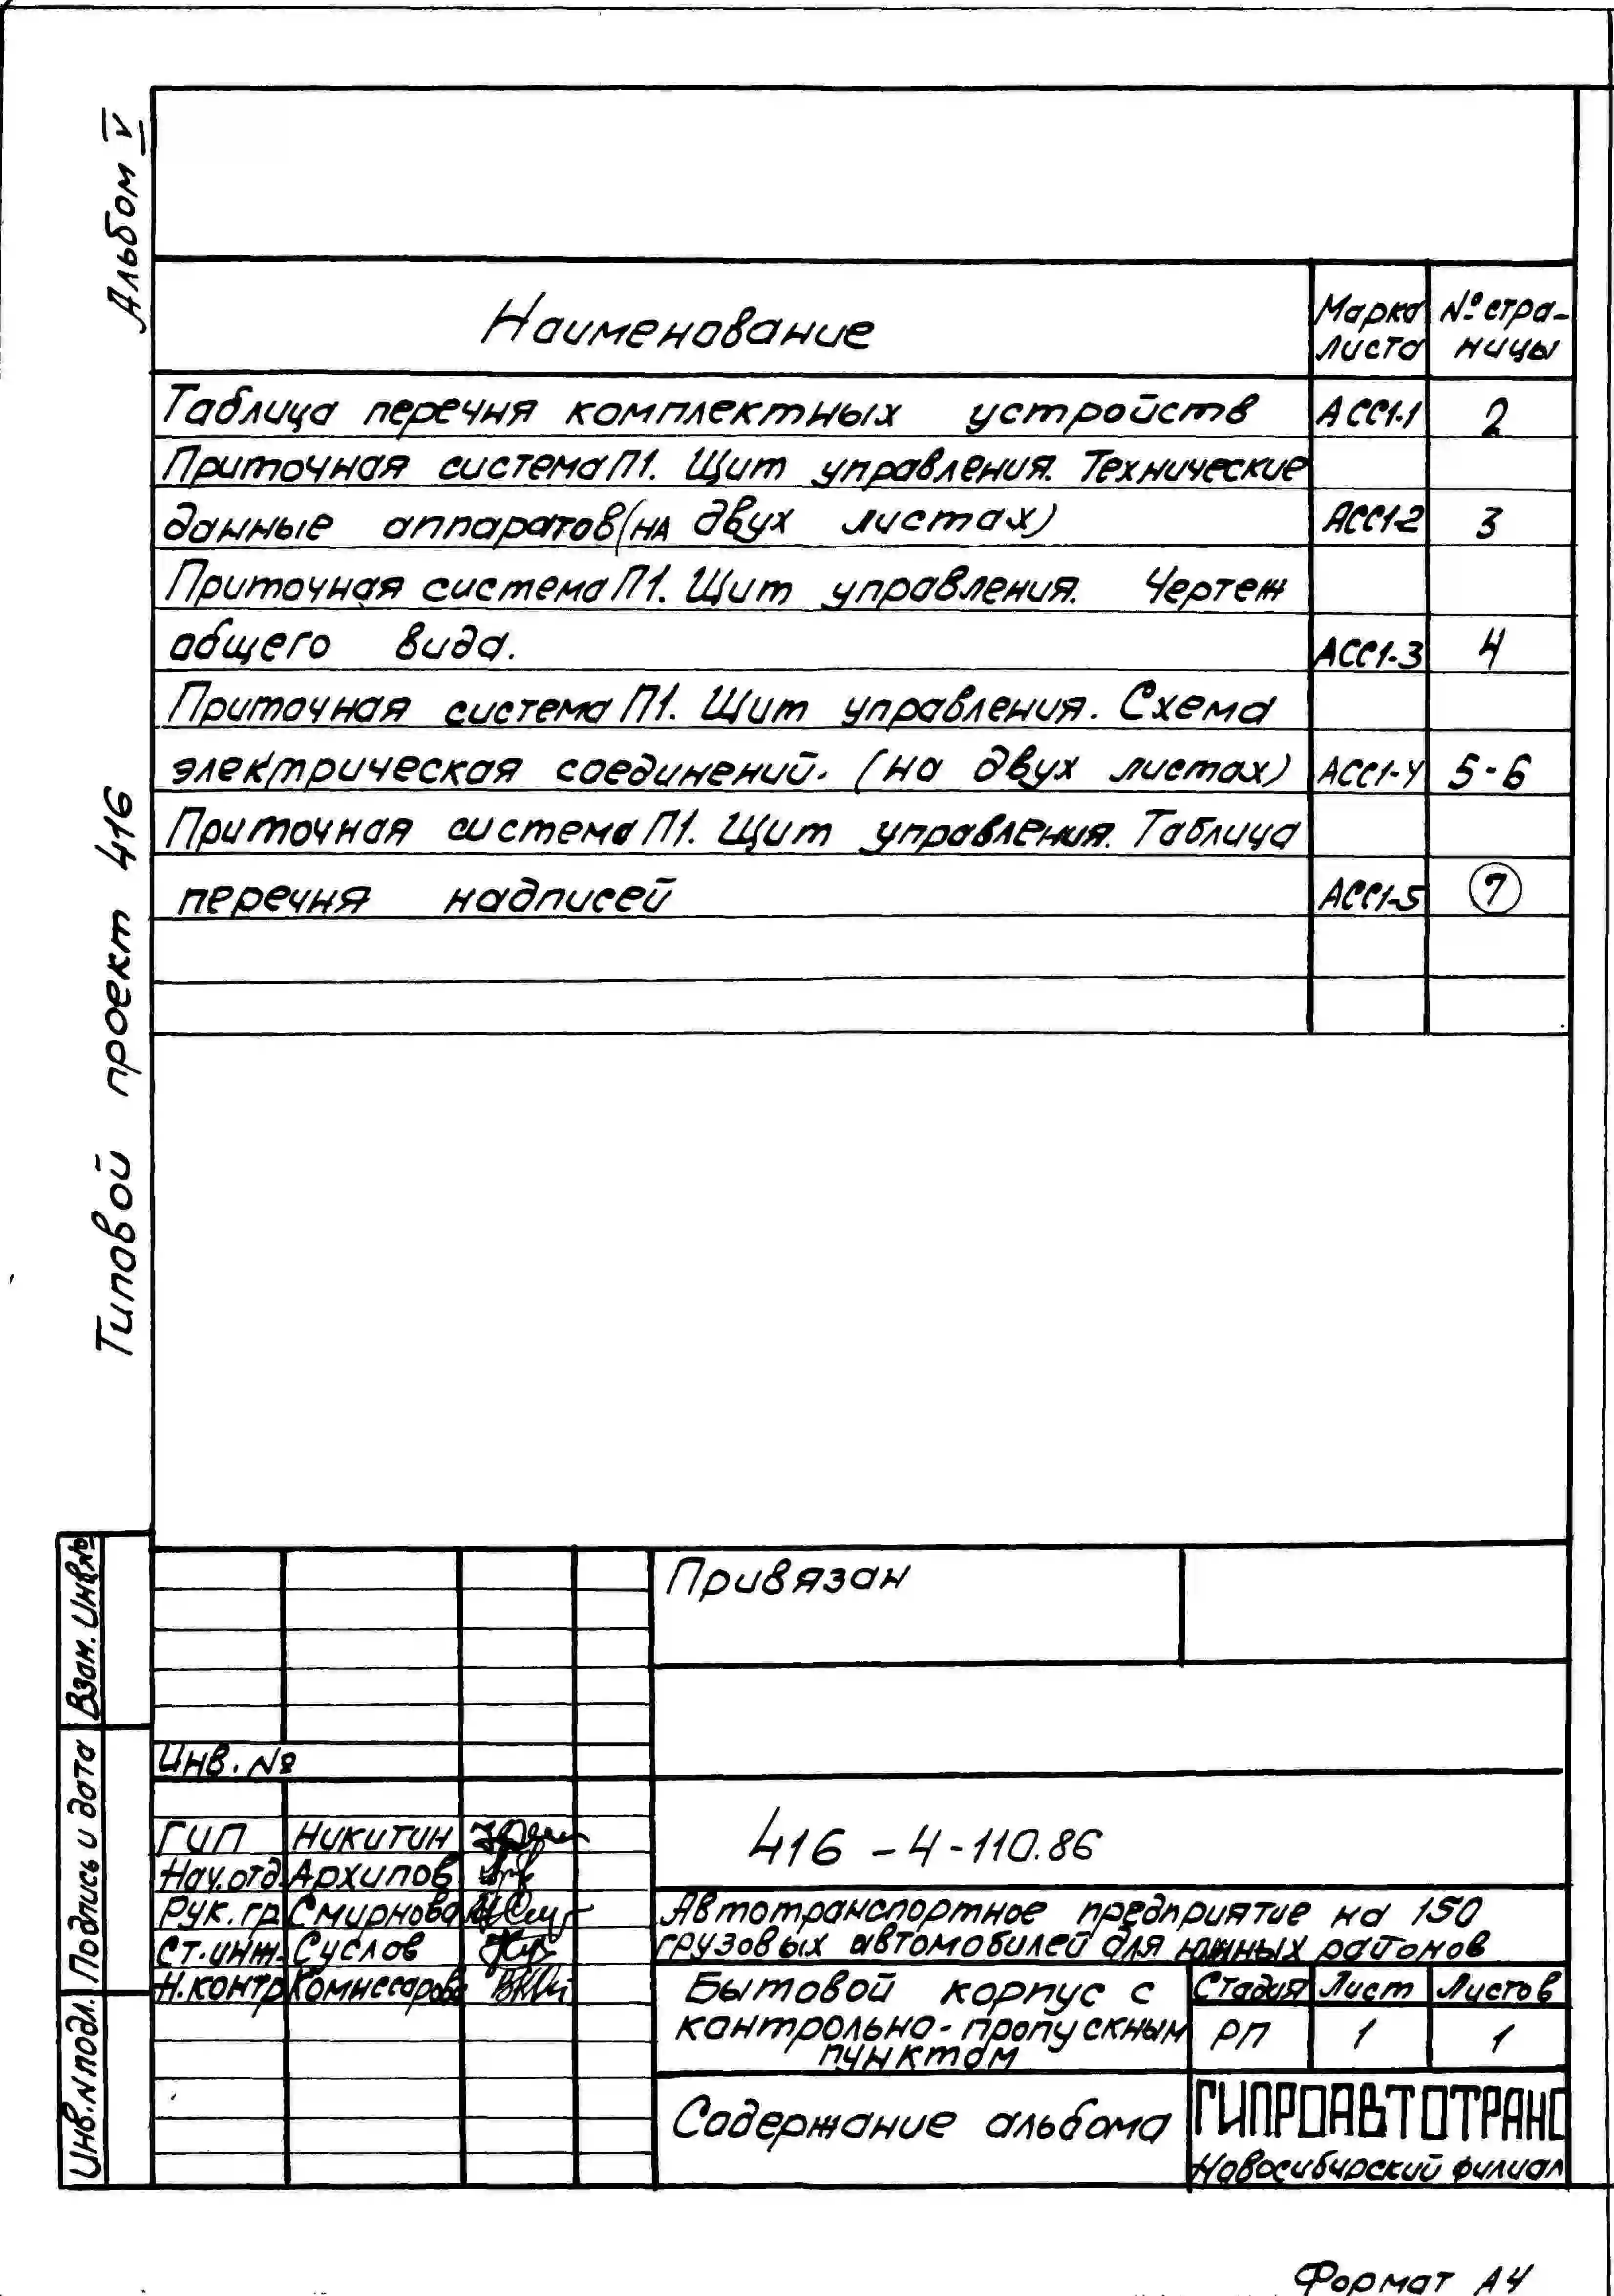 Альбом V
Типовой проект 416
Наименование
Марка листа
№ страницы
Таблица перечня комплектных устройств АСС1-1 2
Приточная система П1. Щит управления. Технические
данные аппаратов (на двух листах) АСС1-2 3
Приточная система П1. Щит управления. Чертеж
общего вида. АСС1-3 4
Приточная система П1. Щит управления. Схема
электрическая соединений. (на двух листах) АСС1-4 5-6
Приточная система П1. Щит управления. Таблица
перечня надписей АСС1-5 7
Взам. Инв.№
Подпись и дата
Инв. N подл.
Привязан
Инв. №
ГИП Никитин
Нач.отд. Архипов
Рук. гр. Смирнова
Ст.инж. Суслов
Н.контр Комиссарова
416-4-110.86
Автотранспортное предприятие на 150
грузовых автомобилей для южных районов
Бытовой корпус с
контрольно-пропускным
пунктом
Стадия Лист Листов
РП 1 1
Содержание альбома
ГИПРОАВТОТРАНС
Новосибирский филиал
Формат А4